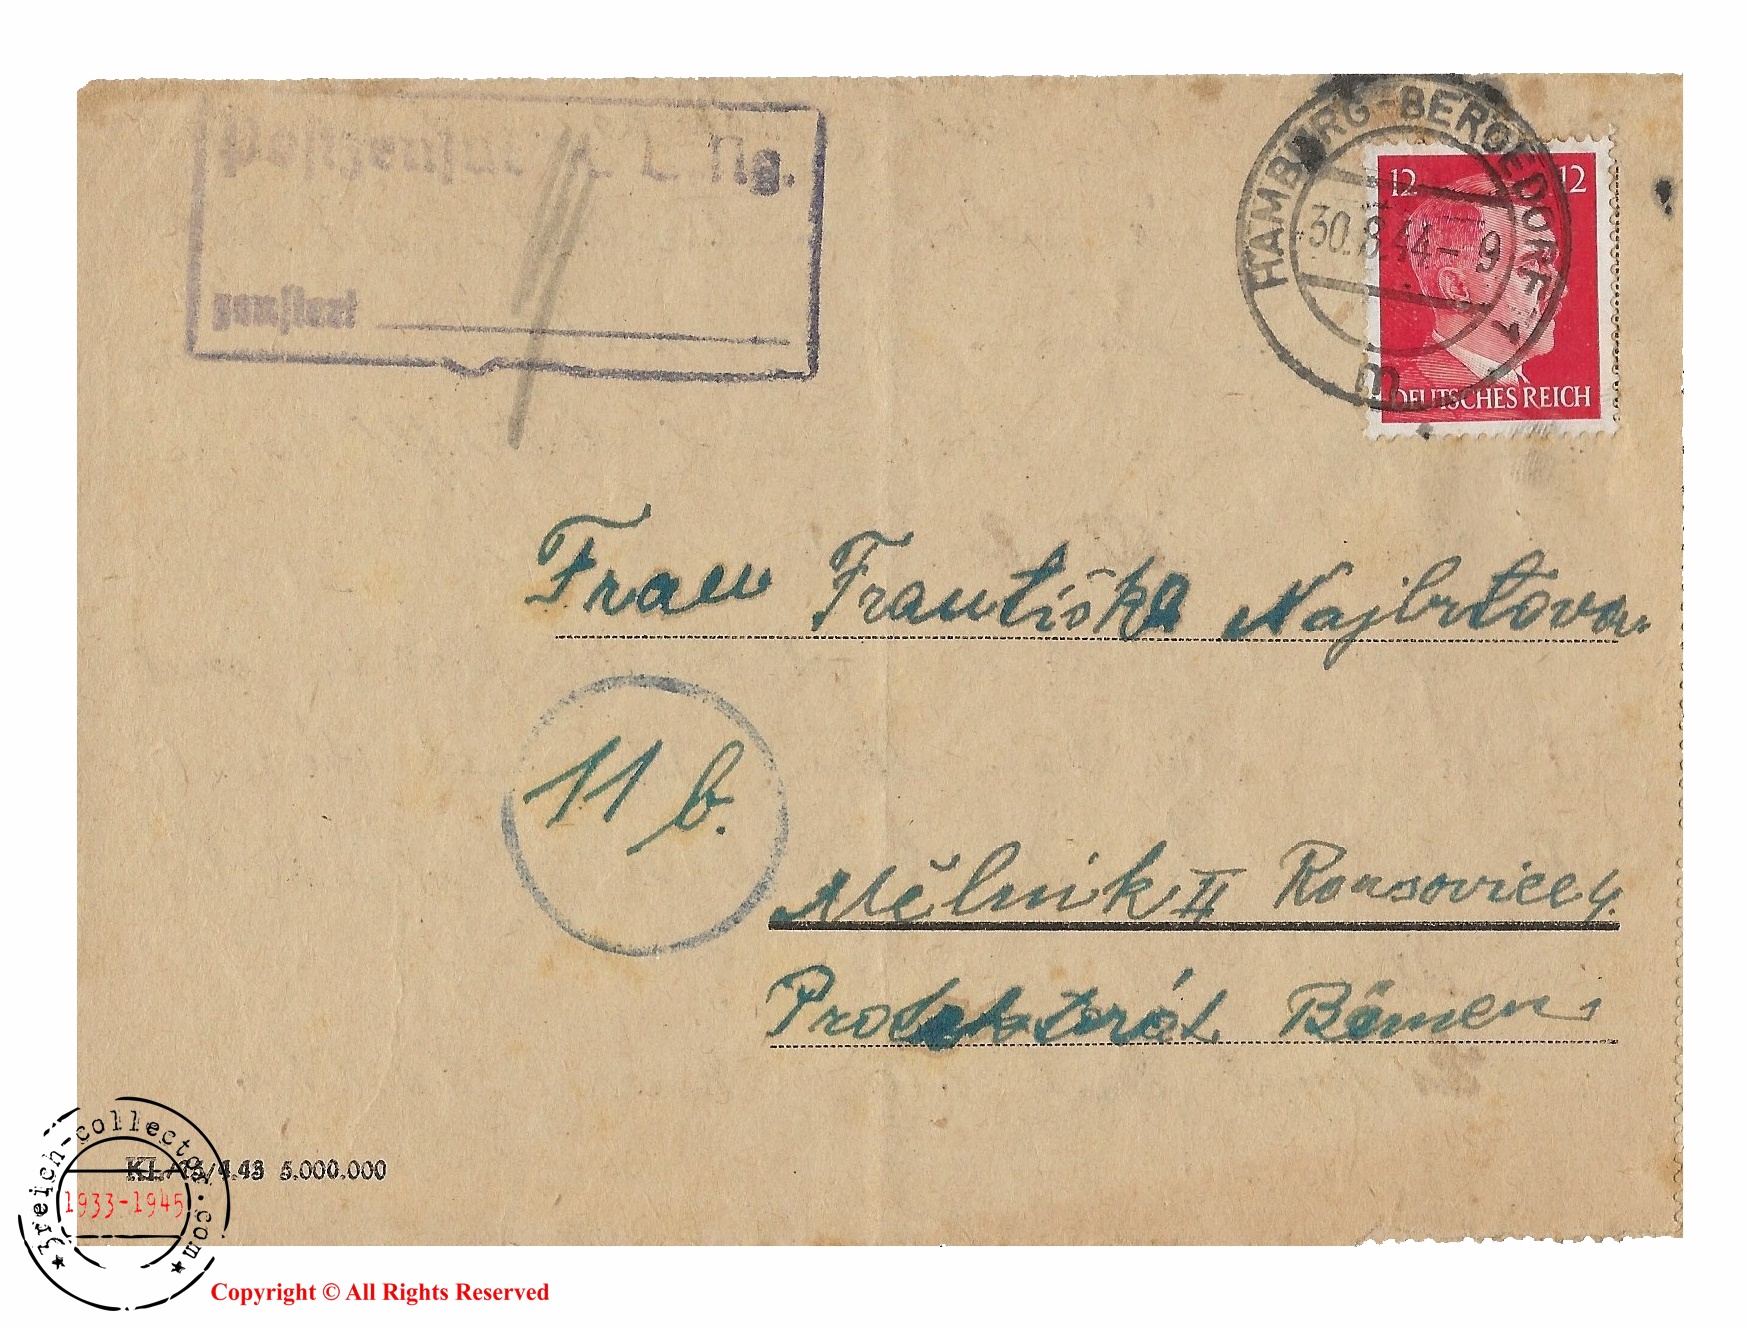 Postzensur K. L. Ng.
zensiert
HAMBURG-BERGEDORF 1
30.8.44-9
m
12 12
DEUTSCHES REICH
Frau Františka Najbrtova
11 b.
Mělnik II Rousovice 4.
Protektorát Bömen
KL/75/4.43 5.000.000
3reich-collector.com
1933-1945
Copyright © All Rights Reserved